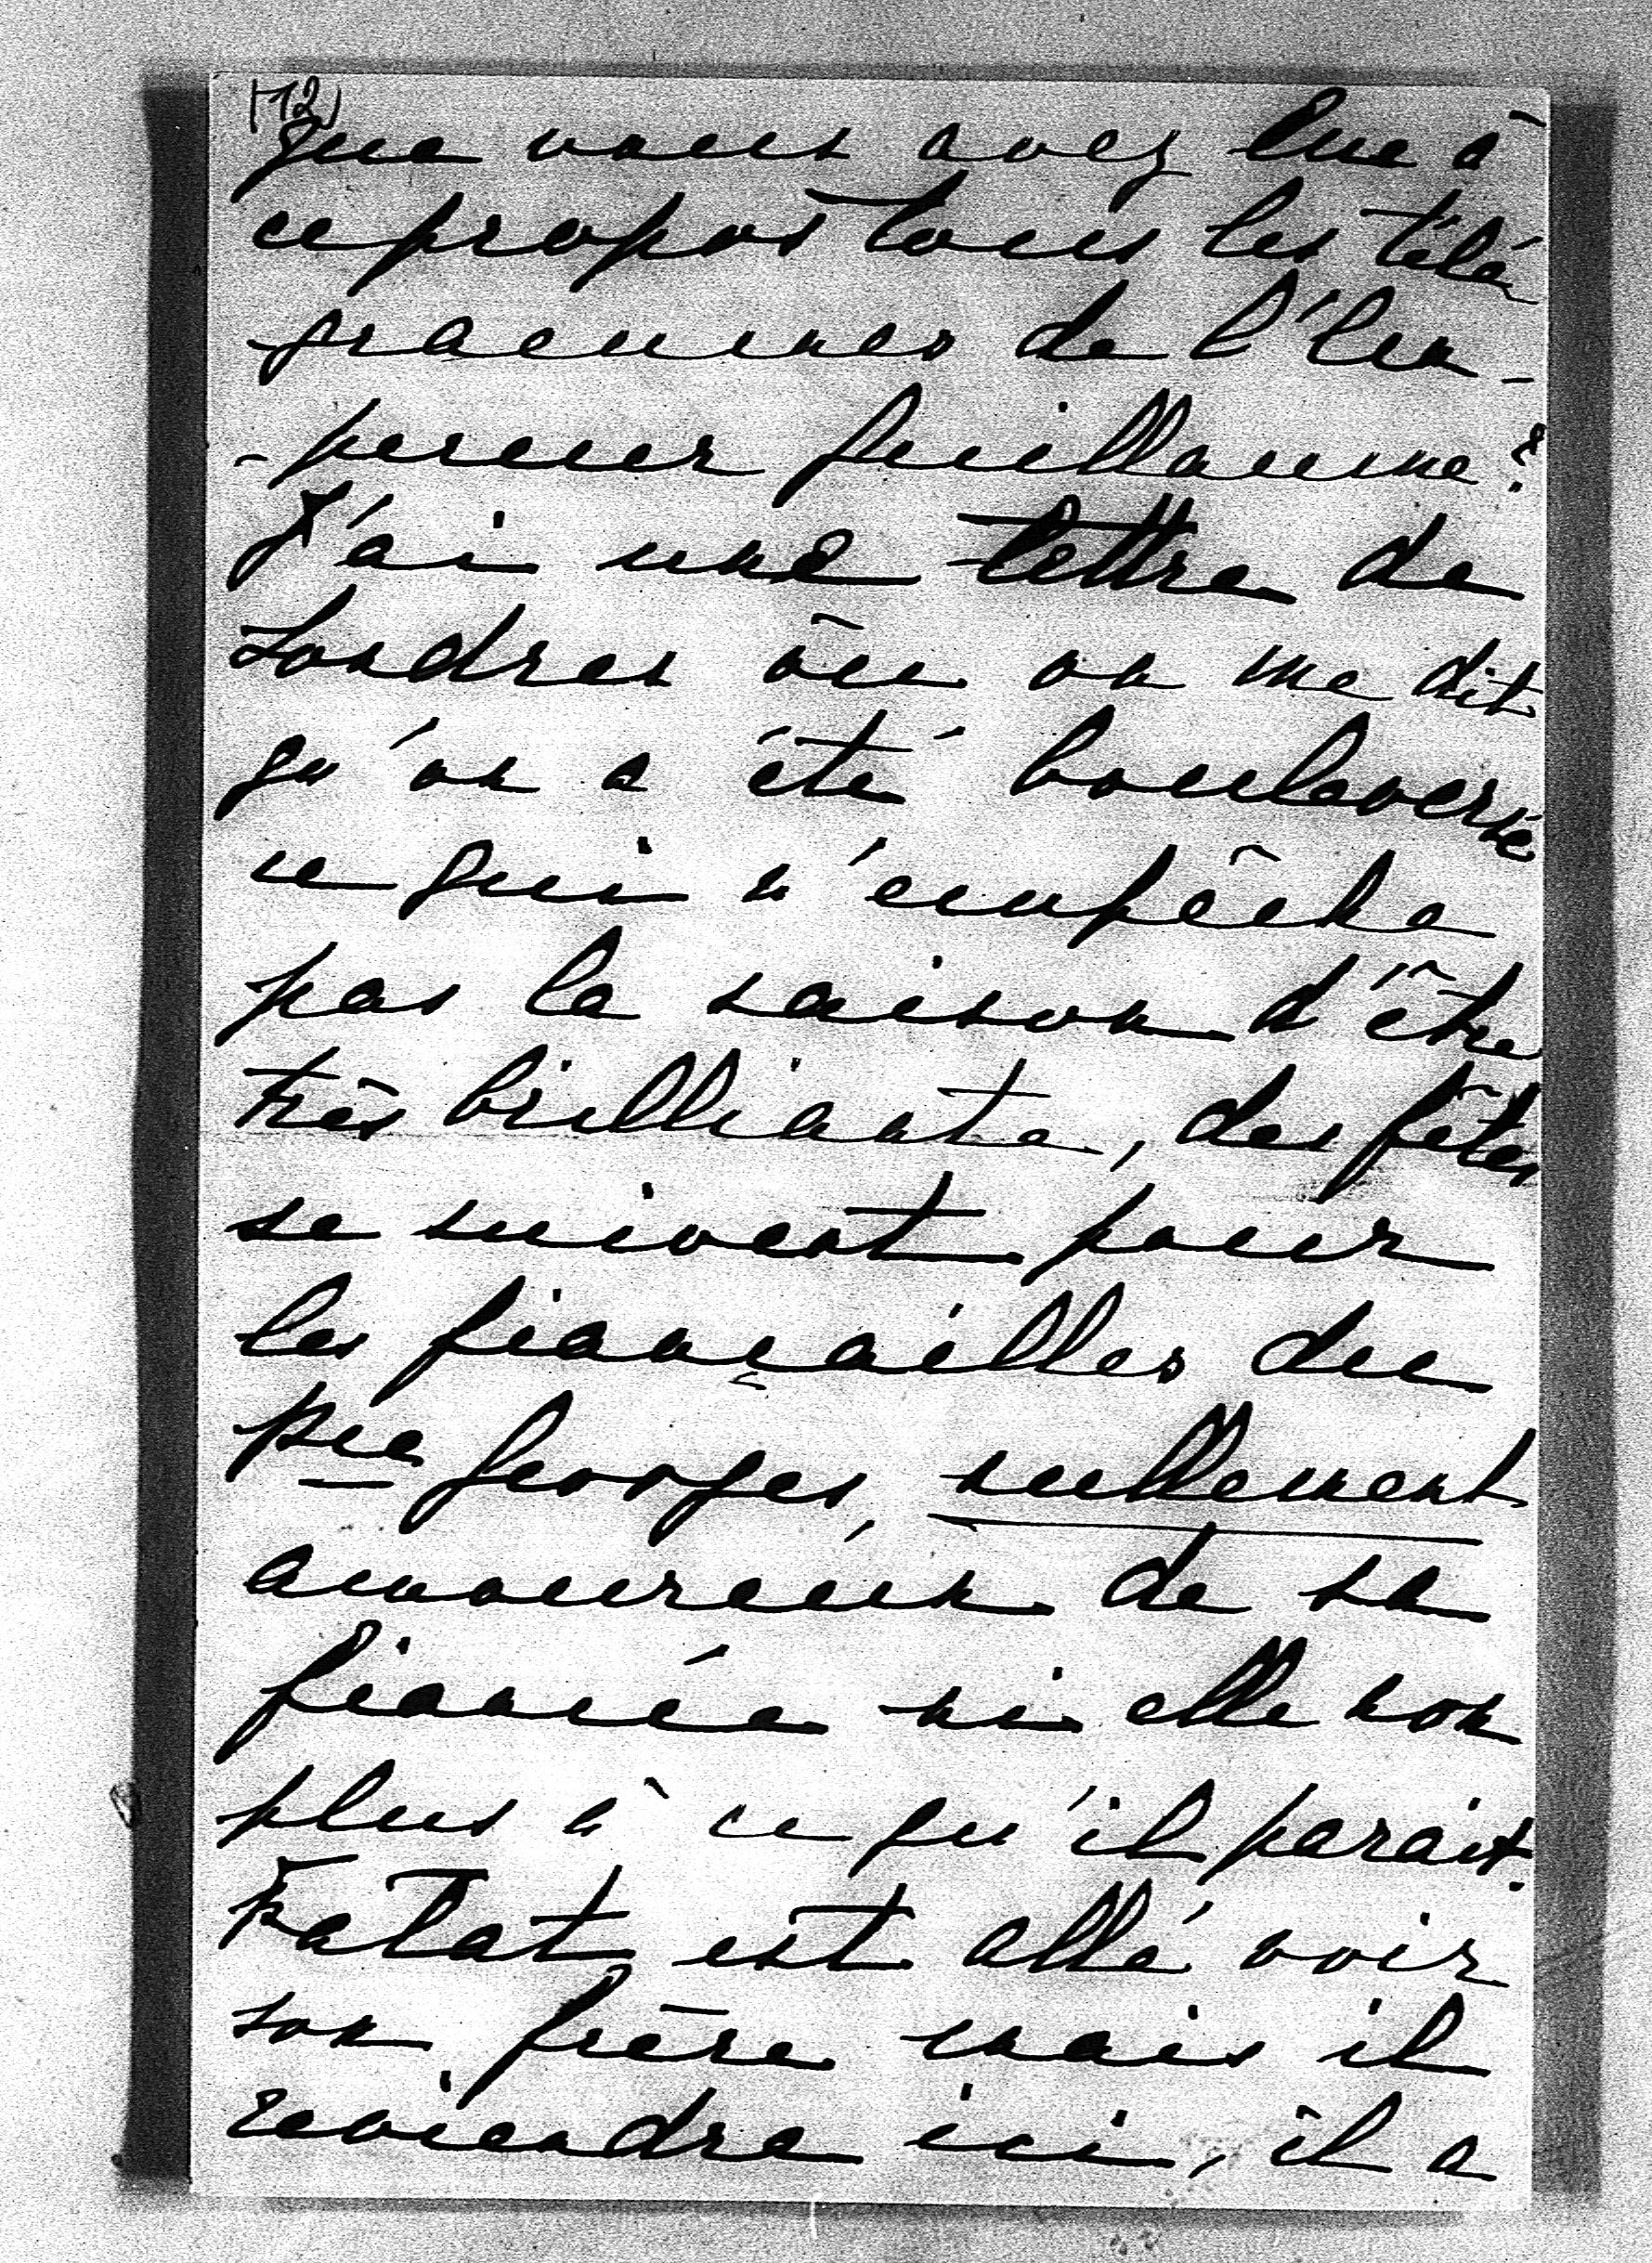 (12)
que vous avez lue à
ce propos tous les télé
grammes de l'Em-
-pereur Guillaume?
J'ai une lettre de
Londres où on me dit
qu'on a été bouleversé
ce qui n'empêche
pas la saison d'être
très brilliante, des fêtes
se suivent pour
les fiançailles du
Pce Georges, nullement
amoureux de sa
fiancée ni elle non
plus à ce qu'il parait.
Falat est allé voir
son frère mais il
reviendra ici, il a